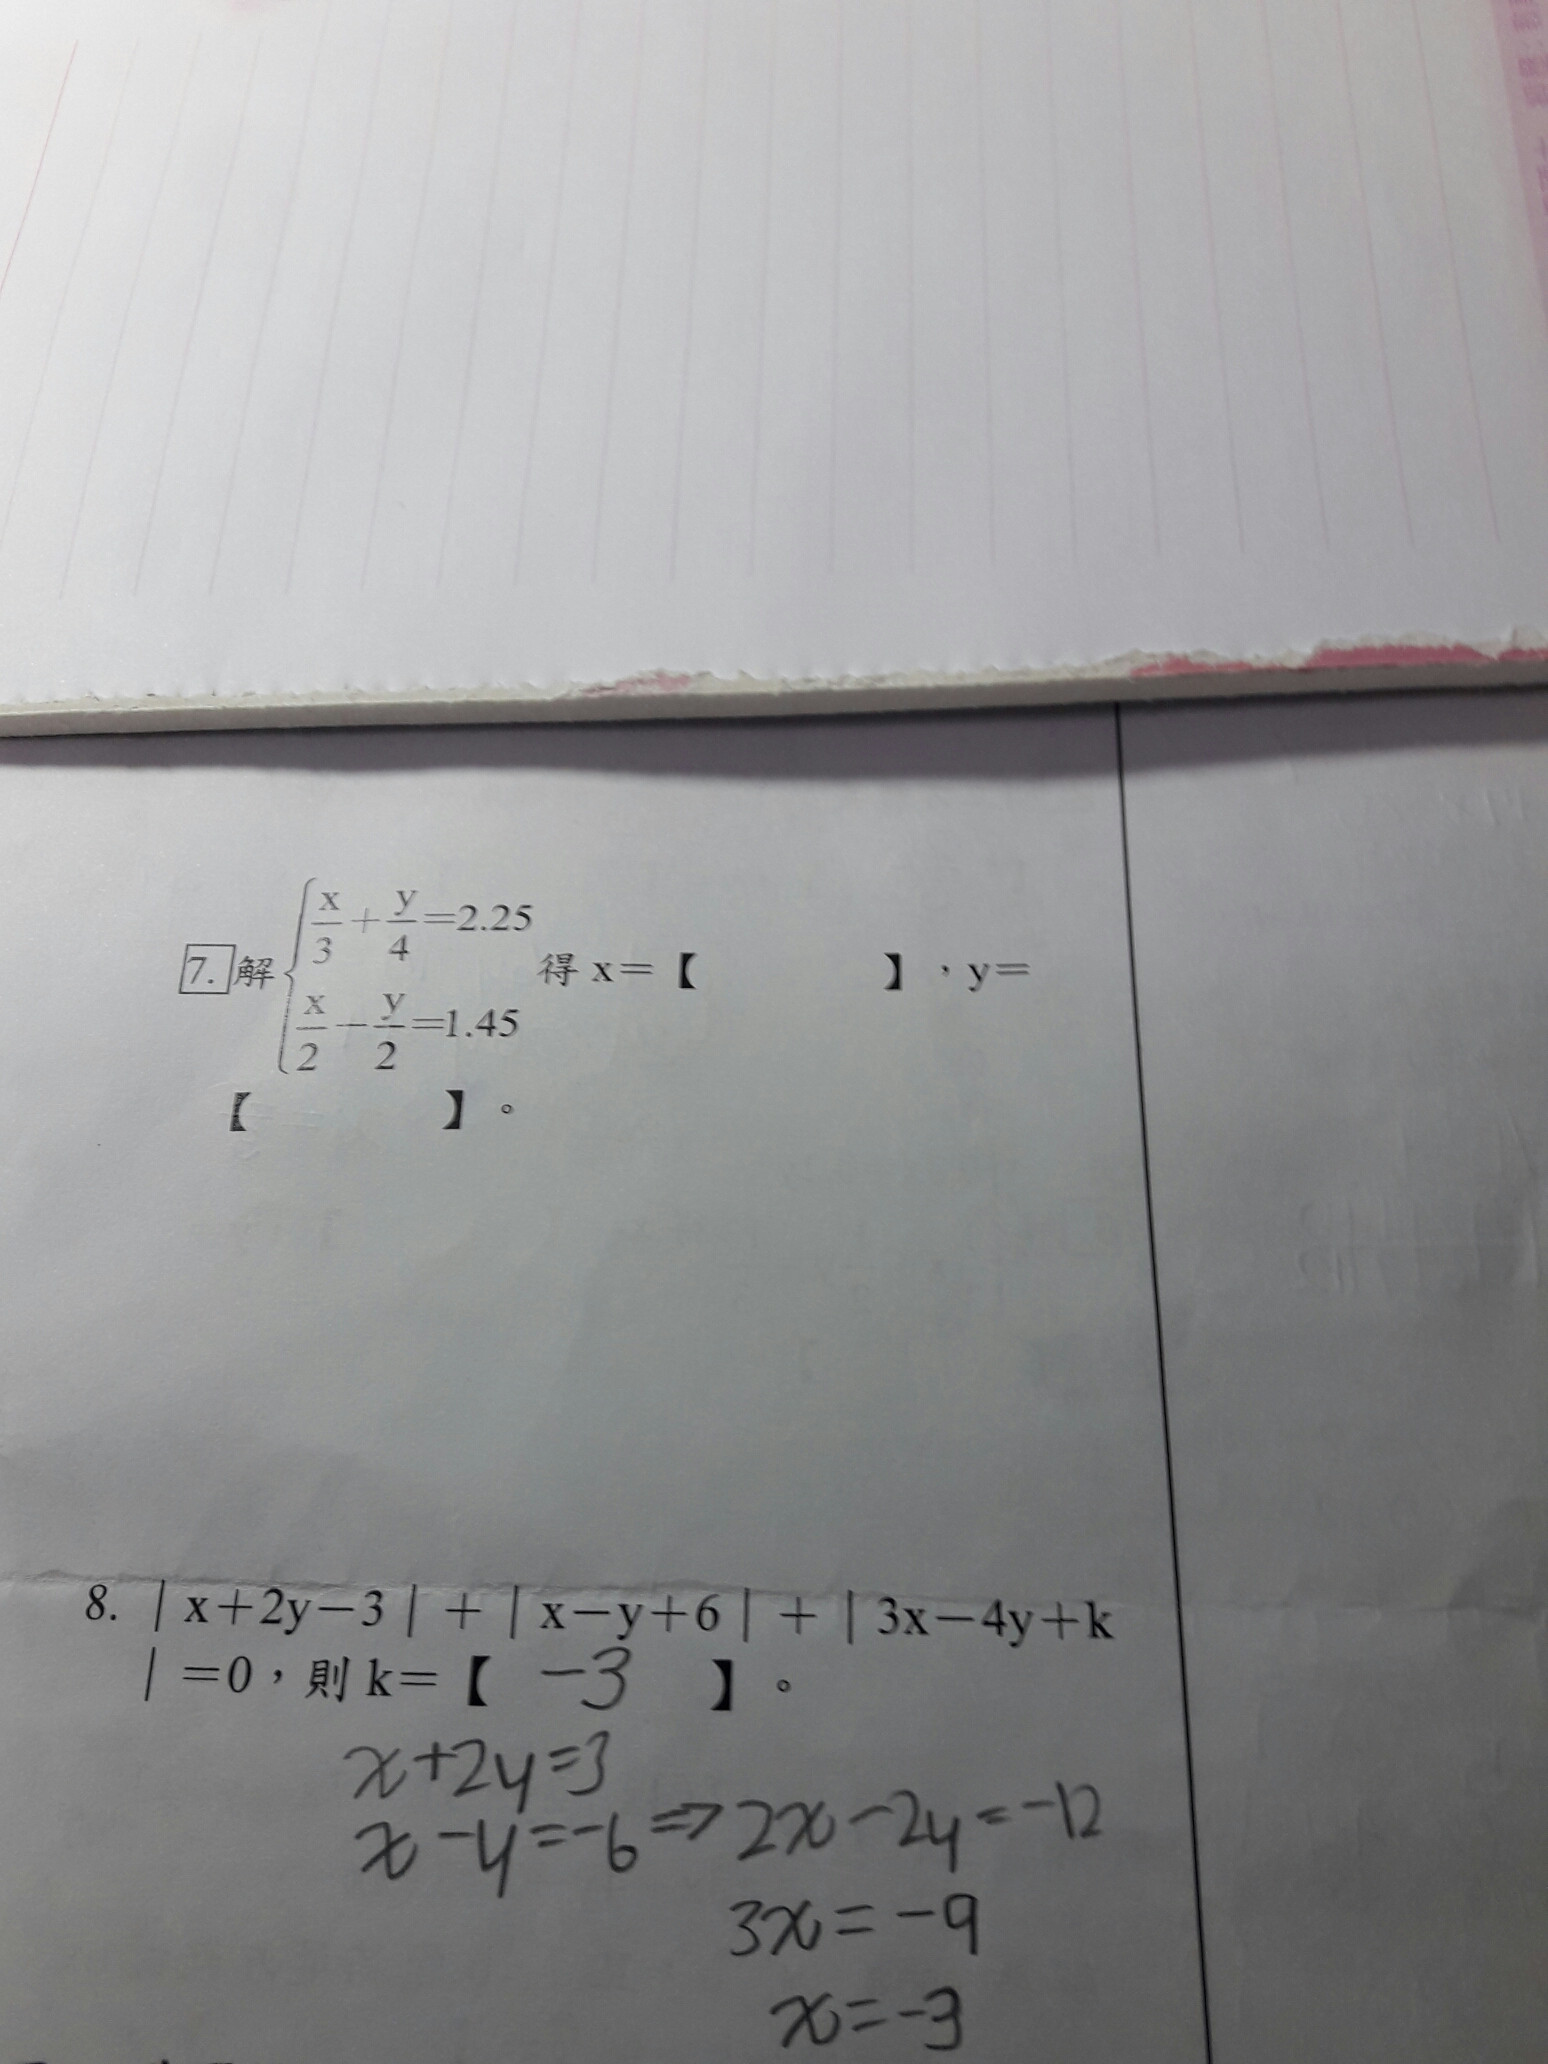 7. 解 { x/3 + y/4 =2.25 得 x=【 】,y=
x/2 − y/2 =1.45
【 】。
8. | x+2y−3 | + | x−y+6 | + | 3x−4y+k
| =0,則 k=【 -3 】。
x+2y=3
x-y=-6 ⇒ 2x-2y=-12
3x=-9
x=-3